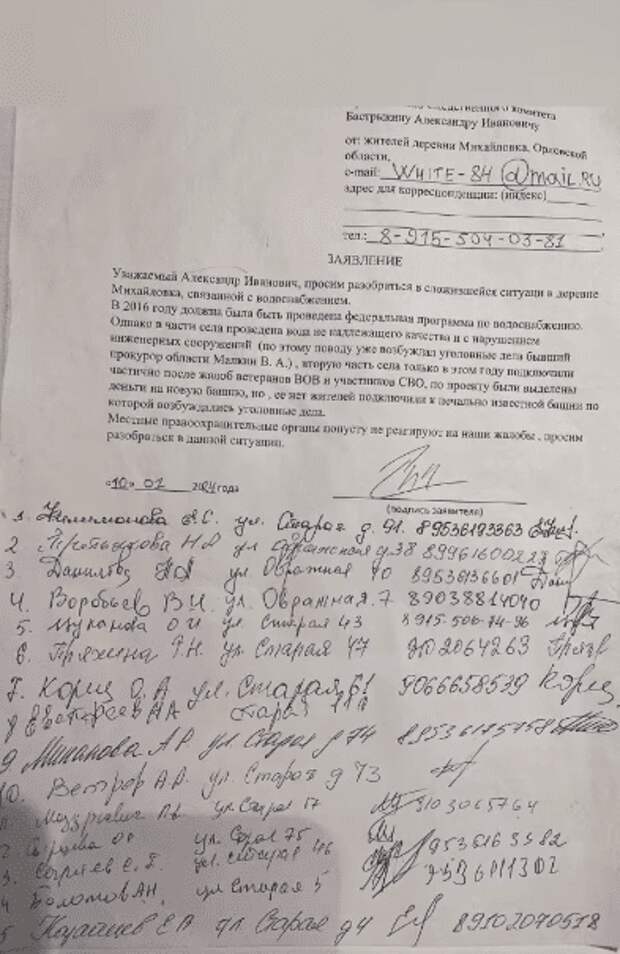 следственного комитета
Бастрыкину Александру Ивановичу
от: жителей деревни Михайловка, Орловской
области,
e-mail: WHITE-84@mail.RU
адрес для корреспонденции: (индекс)
тел.: 8-915-504-03-81
ЗАЯВЛЕНИЕ
Уважаемый Александр Иванович, просим разобраться в сложившейся ситуаци в деревне
Михайловка, связанной с водоснабжением.
В 2016 году должна была быть проведена федеральная программа по водоснабжению.
Однако в части села проведена вода не надлежащего качества и с нарушением
инженерных сооружений (по этому поводу уже возбуждал уголовные дела бывший
прокурор области Малкин В. А.) , вторую часть села только в этом году подключили
частично после жалоб ветеранов ВОВ и участников СВО, по проекту были выделены
деньги на новую башню, но , ее нет жителей подключили к печально известной башни по
которой возбуждались уголовные дела.
Местные правоохранительные органы попусту не реагируют на наши жалобы , просим
разобраться в данной ситуации.
«10» 02 2024 года
(подпись заявителя)
ул. Старая д. 91. 89536193363
2 Н А ул Овражная д.38
3. ул Овражная 40 89536136601
4. Воробьев В И. ул. Овражная. 7 89038814040
5. Цуканова О И ул Старая 43 8-915-506-74-96
6. Пряхина Г.Н. ул. Старая 47 Э02064263 Прях
7. Кориц О. А ул. Старая 61 9066658539 Кориц
8 А А Старая 11а
9 Минакова А Р. ул. Старая д 74 89536175758
10. Ветров А.А. ул. Старая д 73
ул Старая 17 9103065764
ул. Старая 75
3. С. Г. ул. Старая 46
4 Болотов А.Н. ул Старая 5
5 Е В ул Старая д 4 89102090518